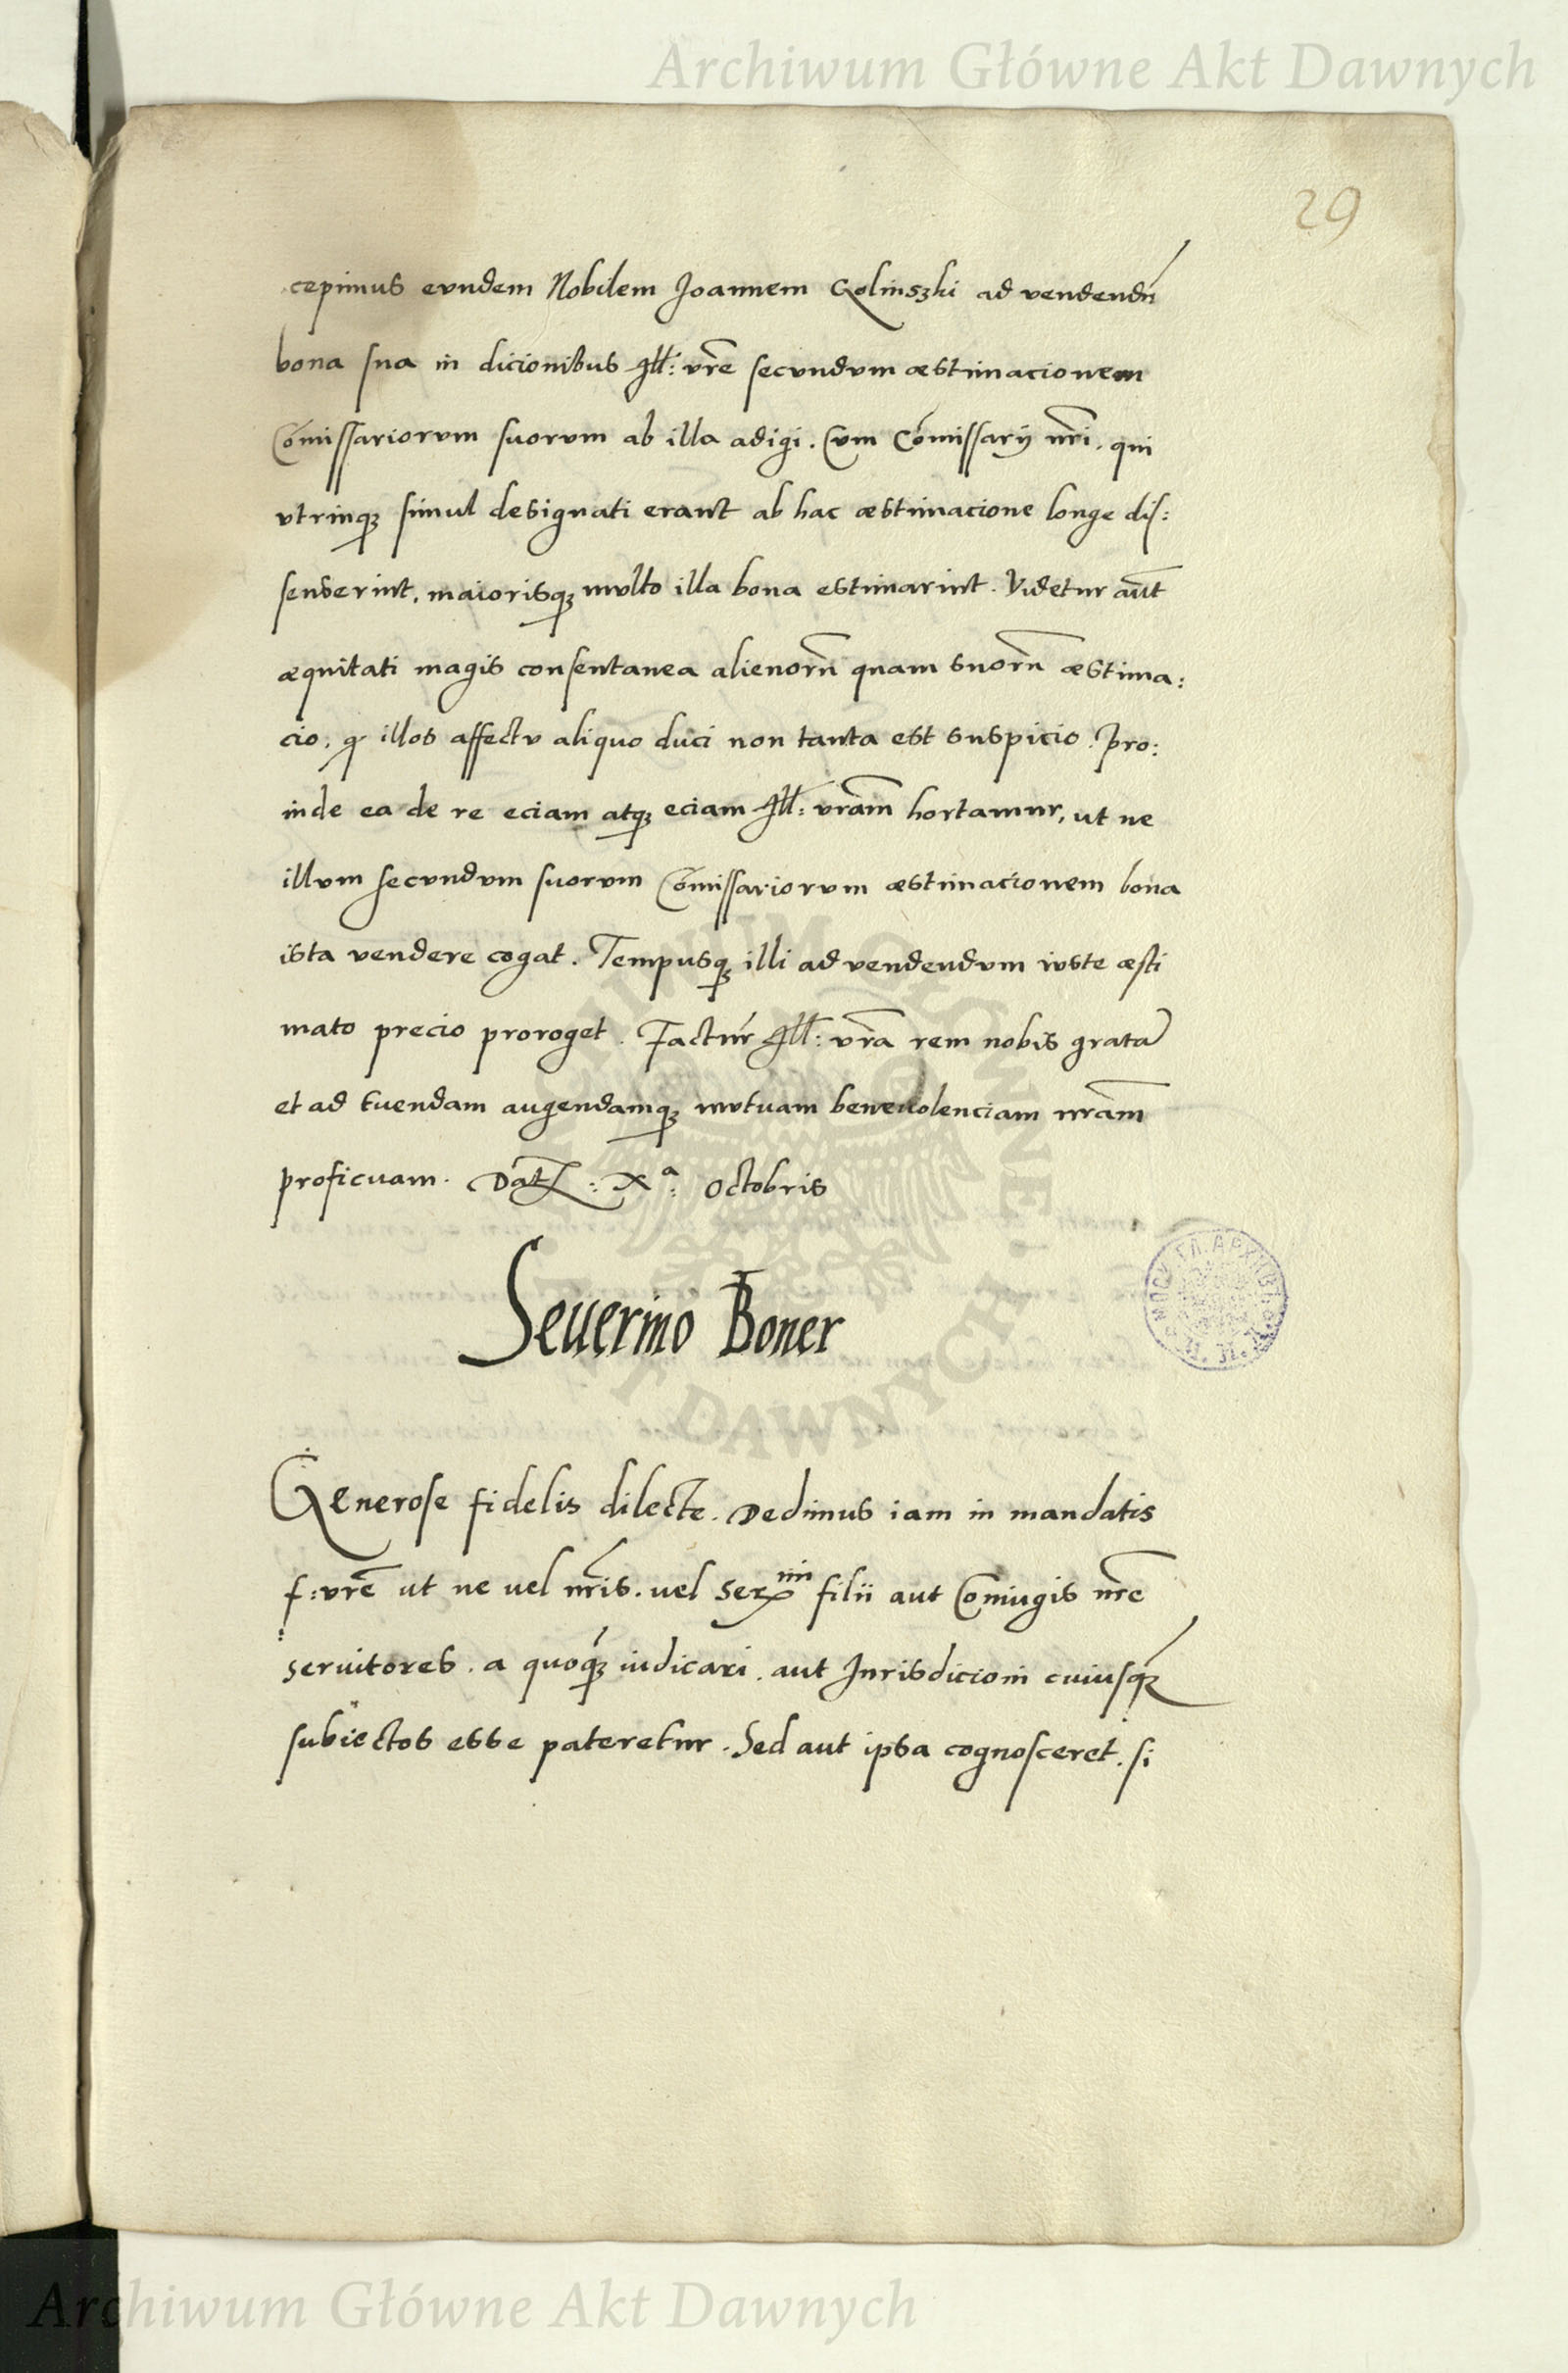 Archiwum Główne Akt Dawnych
29
cepimus eundem Nobilem Joannem Golinszki ad vendendū
bona sua in dicionibus Ill: vr̄e secundum æstimacionem
Cōmissariorum suorum ab illa adigi. Cum Cōmissarij nr̄i. qui
utrinqꝫ simul designati erant ab hac æstimacione longe dis:
senserint, maiorisqꝫ multo illa bona estimarint. Videtur aūt
æquitati magis consentanea alienorū quam suorū æstima:
cio, illos affectu aliquo duci non tanta est suspicio. Pro:
inde ea de re eciam atqꝫ eciam Ill: vrām hortamur, ut ne
illum secundum suorum Cōmissariorum æstimacionem bona
ista vendere cogat. Tempusqꝫ illi ad vendendum iuste æsti
mato precio proroget. Factur Ill: vrā rem nobis gratā
et ad tuendam augendamqꝫ mutuam benevolenciam nrām
proficuam. Dat: Xᵃ: Octobris
Seuerino Boner
Generose fidelis dilecte. Dedimus iam in mandatis
f: vrē ut ne vel nr̄is. vel Ser filii aut Coniugis nr̄e
servitores. a quoqꝫ iudicari. aut Jurisdicioni cuiusqꝫ
subiectos esse pateretur. Sed aut ipsa cognosceret. si
ARCHIWUM GŁÓWNE AKT DAWNYCH
Archiwum Główne Akt Dawnych